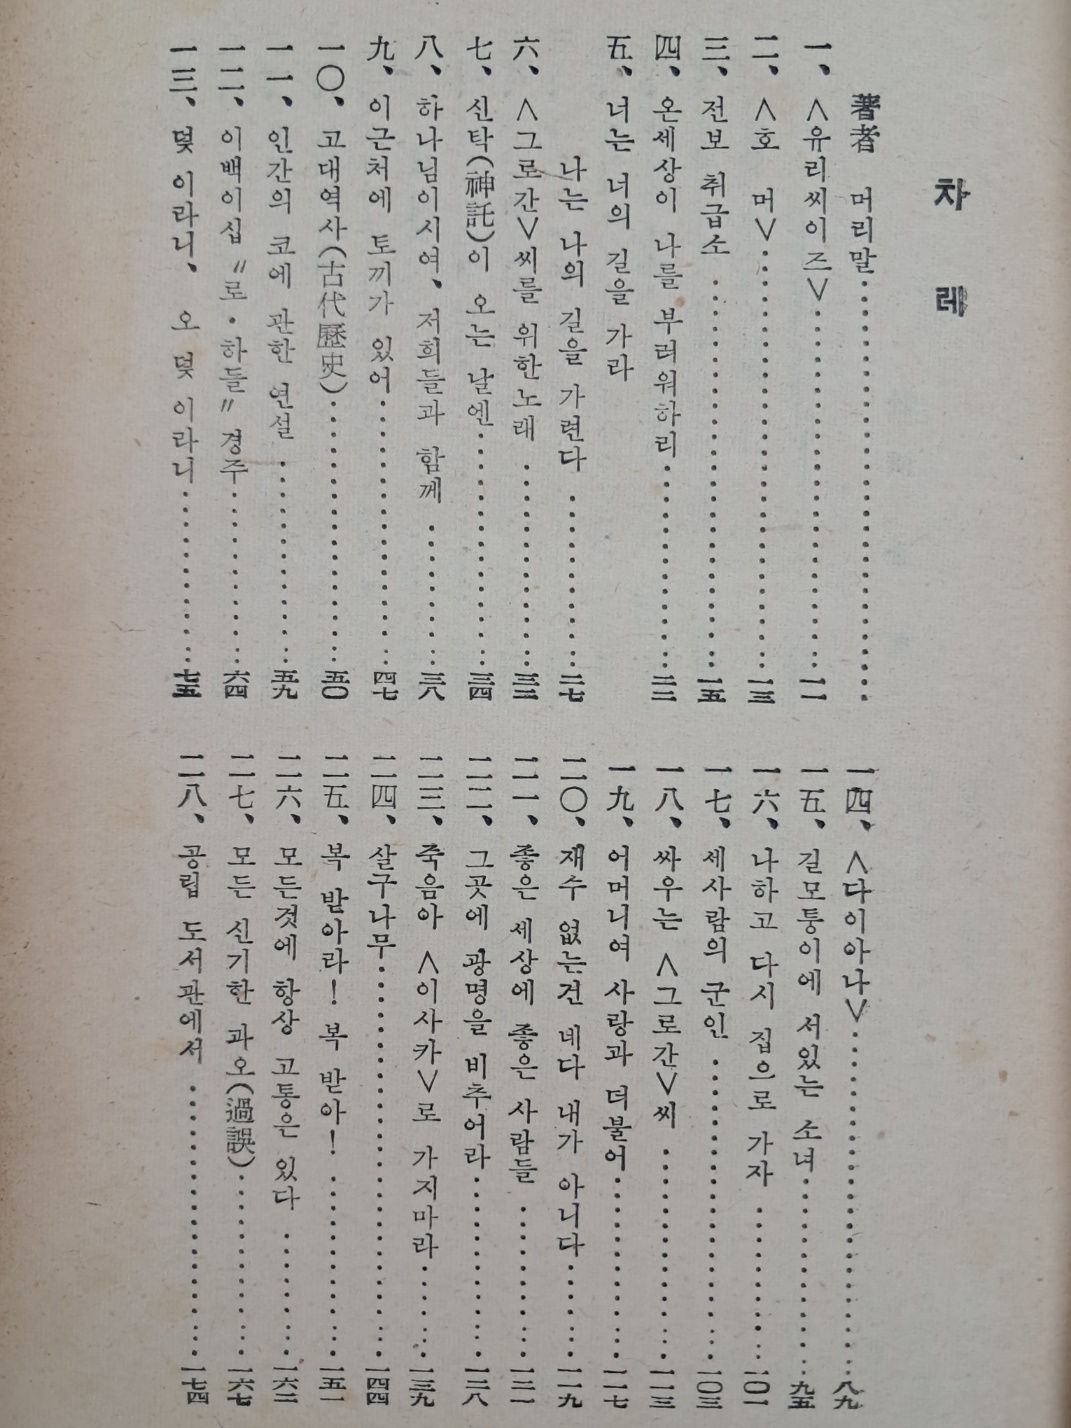 차 레
著者 머리말……
一、 <유리씨이즈>……一一
二、 <호 머>……一三
三、 전보 취급소……一五
四、 온세상이 나를 부러워하리……二二
五、 너는 너의 길을 가라
나는 나의 길을 가련다……二七
六、 <그로간>씨를 위한노래……三二
七、 신탁(神託)이 오는 날엔……三四
八、 하나님이시여、 저희들과 함께……三八
九、 이근처에 토끼가 있어……四七
一〇、 고대역사(古代歷史)……五〇
一一、 인간의 코에 관한 연설……五九
一二、 이백이십 〃로・하들〃 경주……六四
一三、 덫 이라니、 오 덫 이라니……七五
一四、 <다이아나>……八九
一五、 길모퉁이에 서있는 소녀……九五
一六、 나하고 다시 집으로 가자……一〇一
一七、 세사람의 군인……一〇三
一八、 싸우는 <그로간>씨……一一三
一九、 어머니여 사랑과 더불어……一一七
二〇、 재수 없는건 네다 내가 아니다……一一九
二一、 좋은 세상에 좋은 사람들……一二一
二二、 그곳에 광명을 비추어라……一二八
二三、 죽음아 <이사카>로 가지마라……一三九
二四、 살구나무……一四四
二五、 복 받아라! 복 받아!……一五一
二六、 모든것에 항상 고통은 있다……一六二
二七、 모든 신기한 과오(過誤)……一六七
二八、 공립 도서관에서……一七四